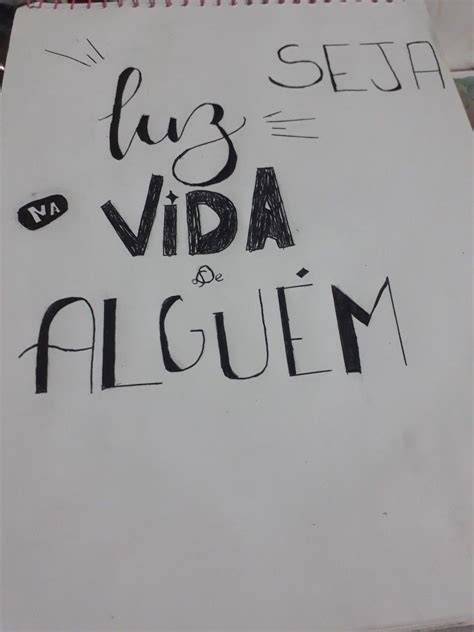 SEJA
luz
NA VIDA
De
ALGUÉM